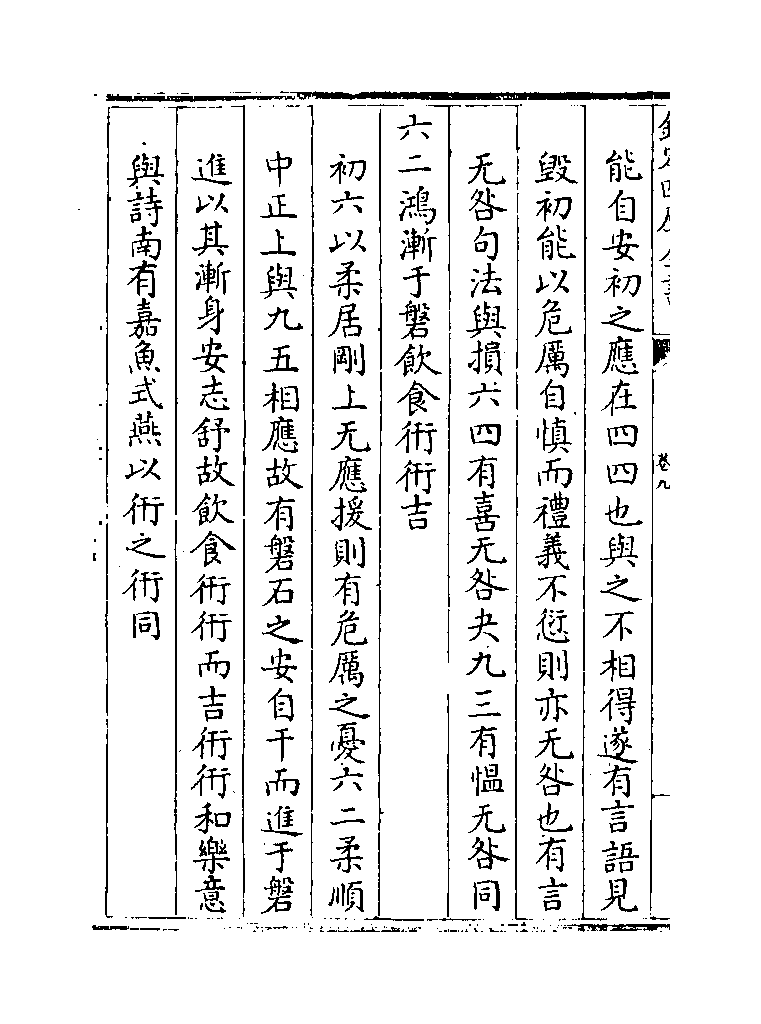 欽定四庫全書
卷九
能自安初之應在四四也與之不相得遂有言語見
毀初能以危厲自慎而禮義不愆則亦无咎也有言
无咎句法與損六四有喜无咎夬九三有愠无咎同
六二鴻漸于磐飲食衎衎吉
初六以柔居剛上无應援則有危厲之憂六二柔順
中正上與九五相應故有磐石之安自干而進于磐
進以其漸身安志舒故飲食衎衎而吉衎衎和樂意
與詩南有嘉魚式燕以衎之衎同